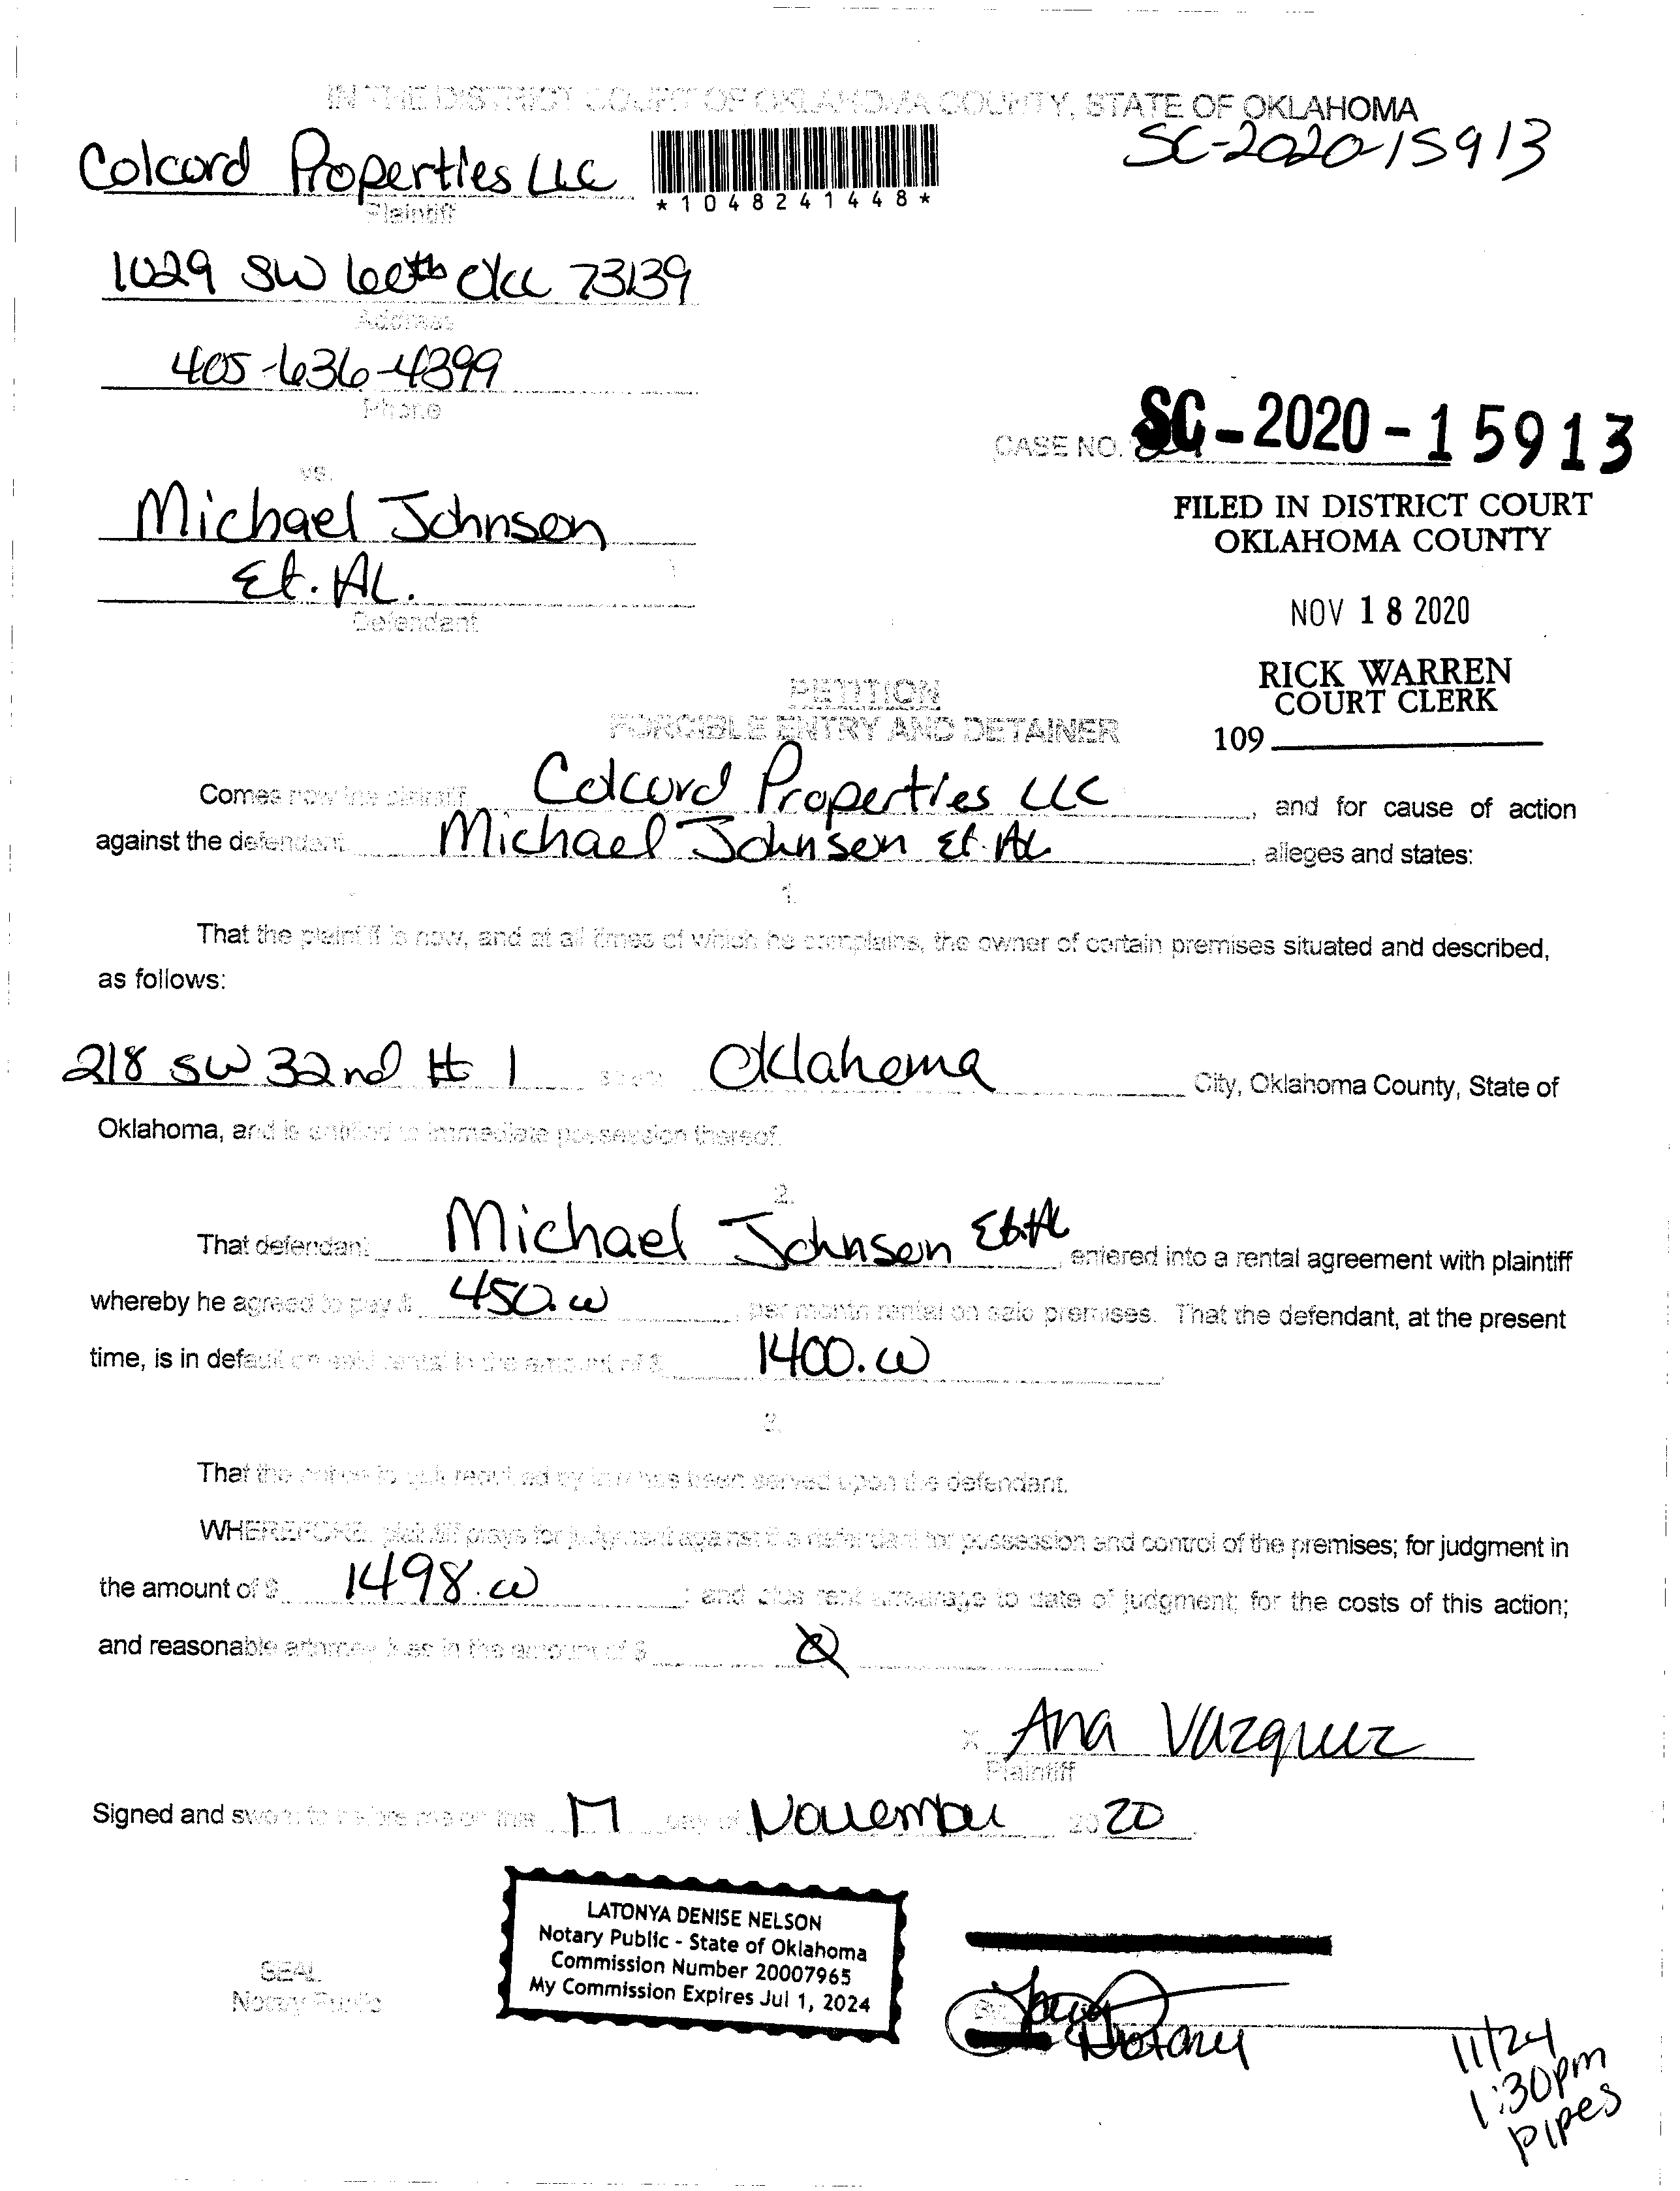 IN THE DISTRICT COURT OF OKLAHOMA COUNTY, STATE OF OKLAHOMA
SC-2020-15913
Colcord Properties LLC
*1048241448*
Plaintiff
1029 SW 66th OKC 73139
Address
405-636-4399
Phone
CASE NO. SC-2020-15913
vs.
FILED IN DISTRICT COURT
OKLAHOMA COUNTY
Michael Johnson
Et. AL.
Defendant
NOV 18 2020
RICK WARREN
COURT CLERK
109
PETITION
FORCIBLE ENTRY AND DETAINER
Comes now the plaintiff Colcord Properties LLC, and for cause of action
against the defendant Michael Johnson Et. AL, alleges and states:
1.
That the plaintiff is now, and at all times of which he complains, the owner of certain premises situated and described,
as follows:
218 SW 32nd # 1 Oklahoma City, Oklahoma County, State of
Oklahoma, and is entitled to immediate possession thereof.
2.
That defendant Michael Johnson Et. AL, entered into a rental agreement with plaintiff
whereby he agreed to pay $ 450.00, per month rental on said premises. That the defendant, at the present
time, is in default on said rental in the amount of $ 1400.00
3.
That the notice to quit required by law has been served upon the defendant.
WHEREFORE, plaintiff prays for judgment against the defendant for possession and control of the premises; for judgment in
the amount of $ 1498.00; and plus rent arrearage to date of judgment; for the costs of this action;
and reasonable attorney fees in the amount of $
x Ana Vazquez
Plaintiff
Signed and sworn to before me on this 17 day of November 2020
LATONYA DENISE NELSON
Notary Public - State of Oklahoma
Commission Number 20007965
My Commission Expires Jul 1, 2024
SEAL
Notary Public
By:
Notary
11/24
1:30pm
Pipes